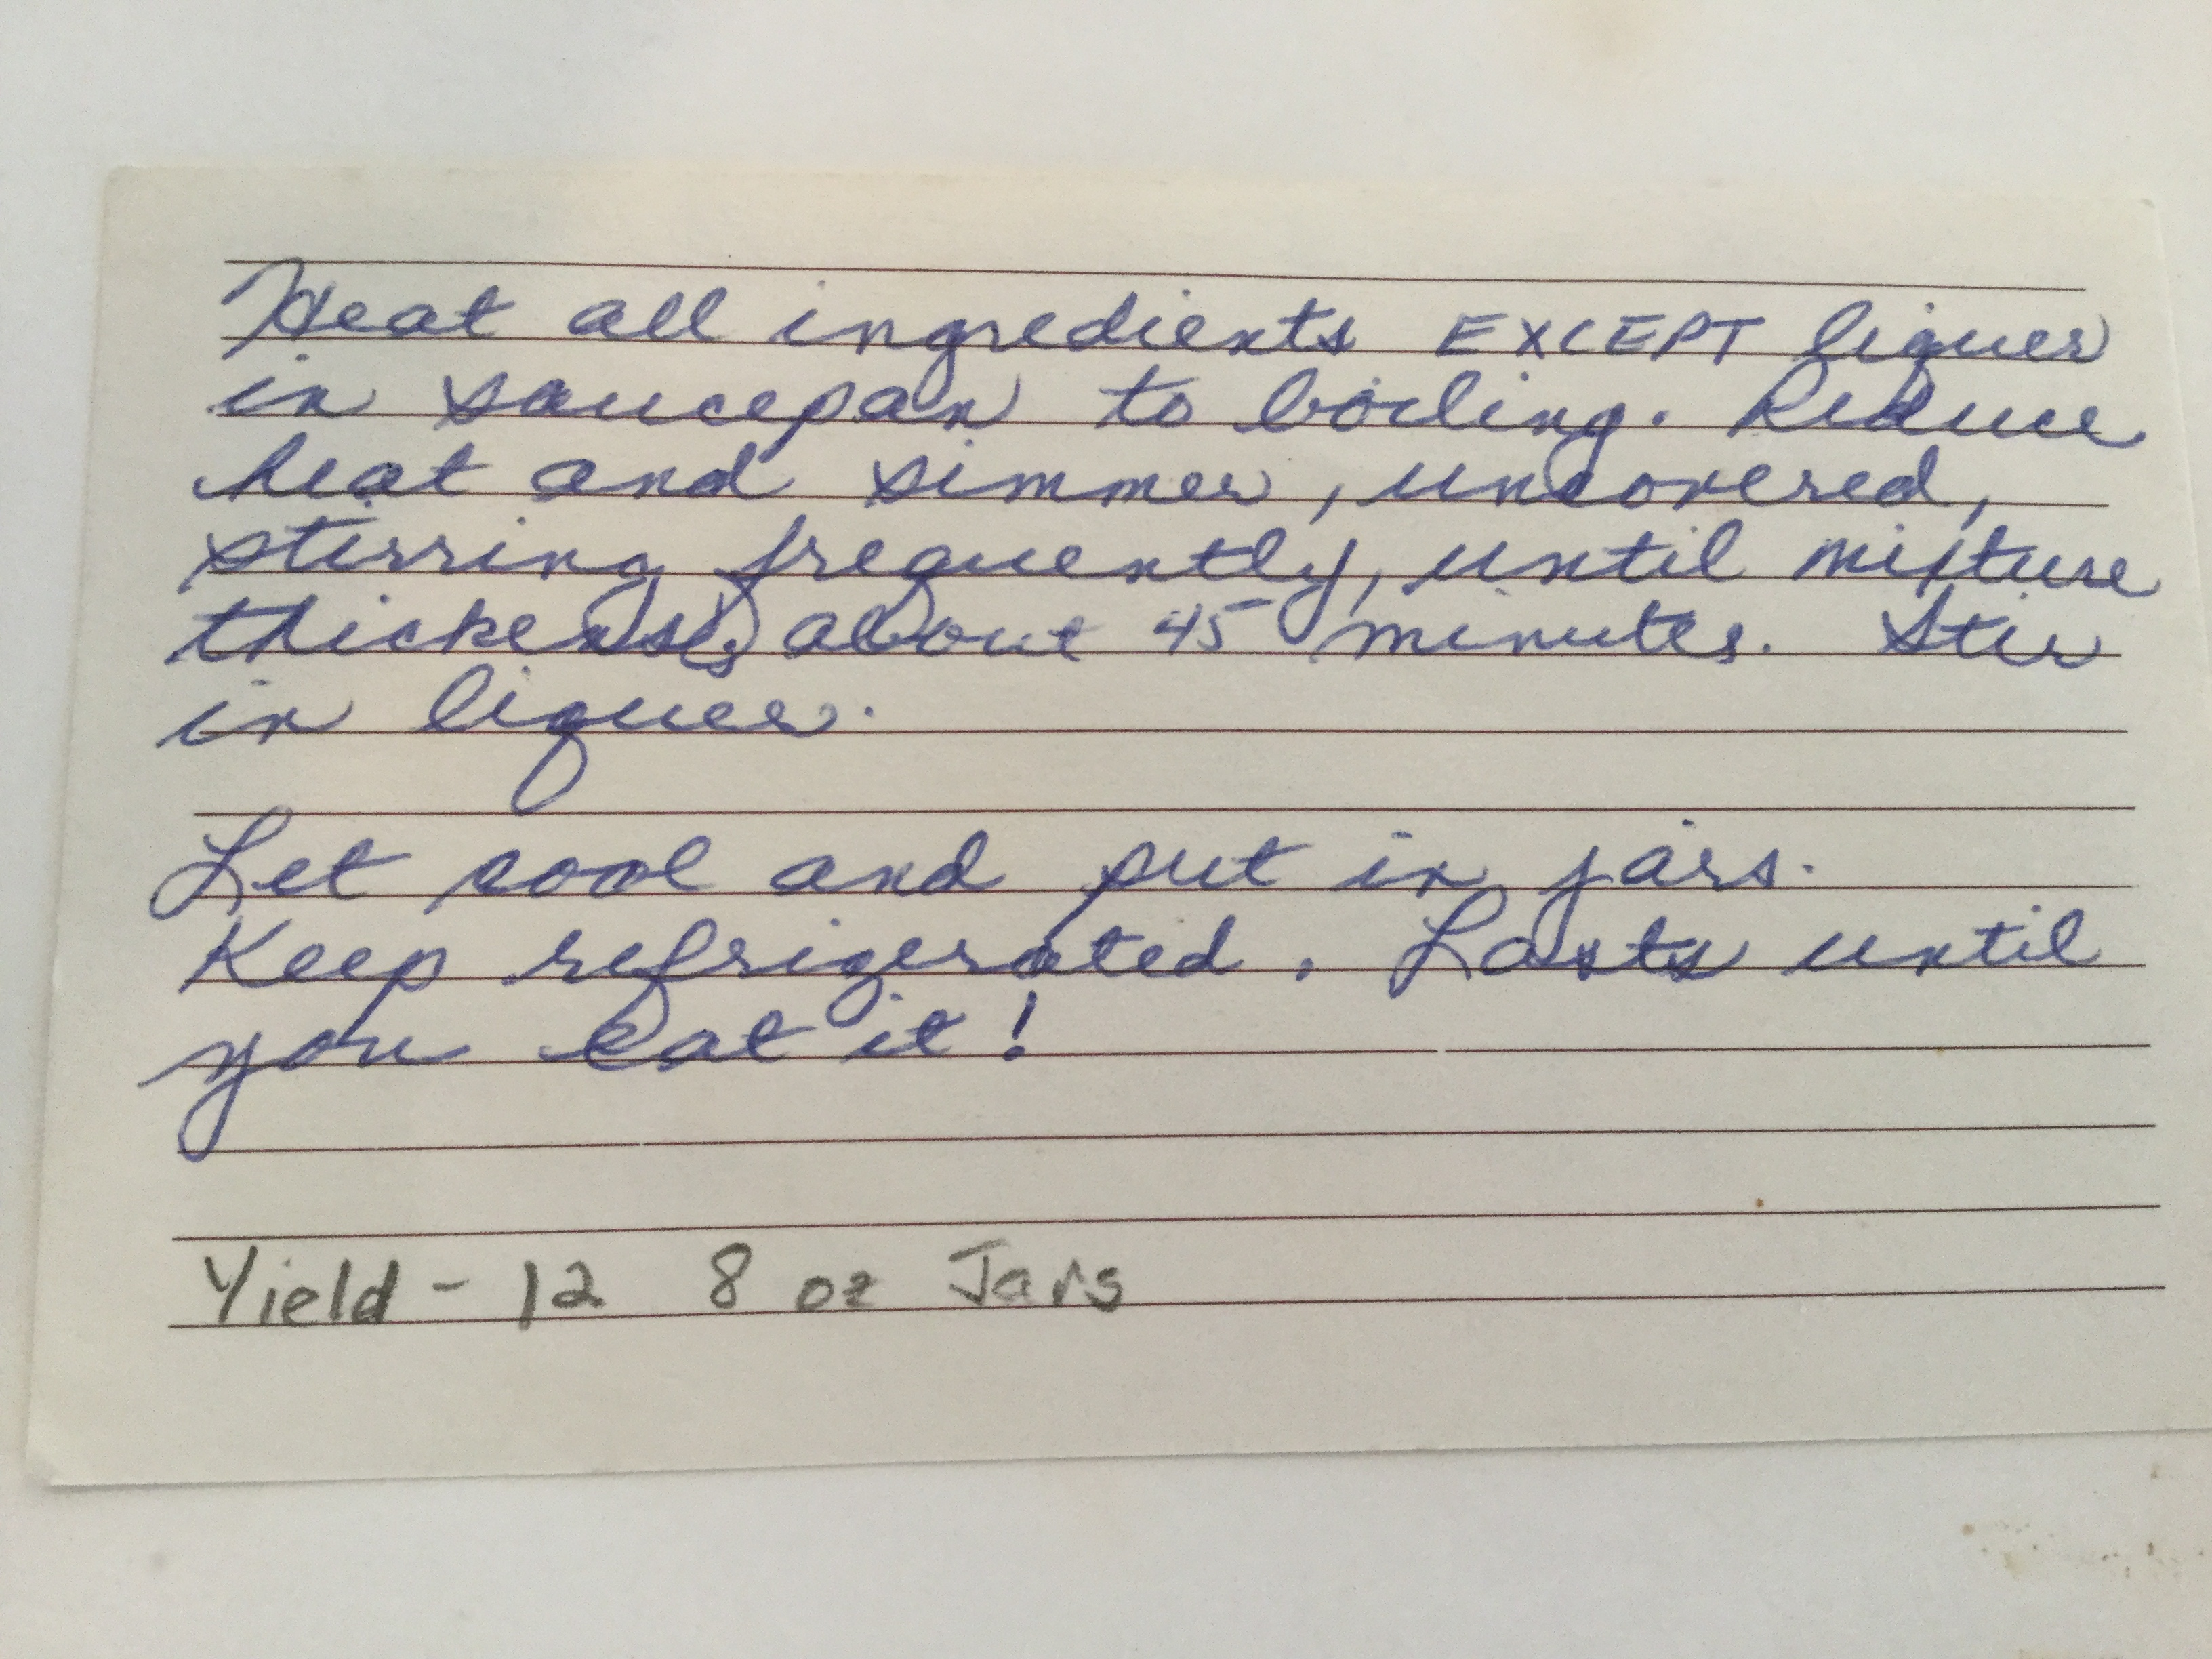 Heat all ingredients EXCEPT liquer
in saucepan to boiling. Reduce
heat and simmer, uncovered,
stirring frequently, until mixture
thickens, about 45 minutes. Stir
in liquer.
Let cool and put in jars.
Keep refrigerated. Lasts until
you eat it!
Yield - 12 8 oz Jars